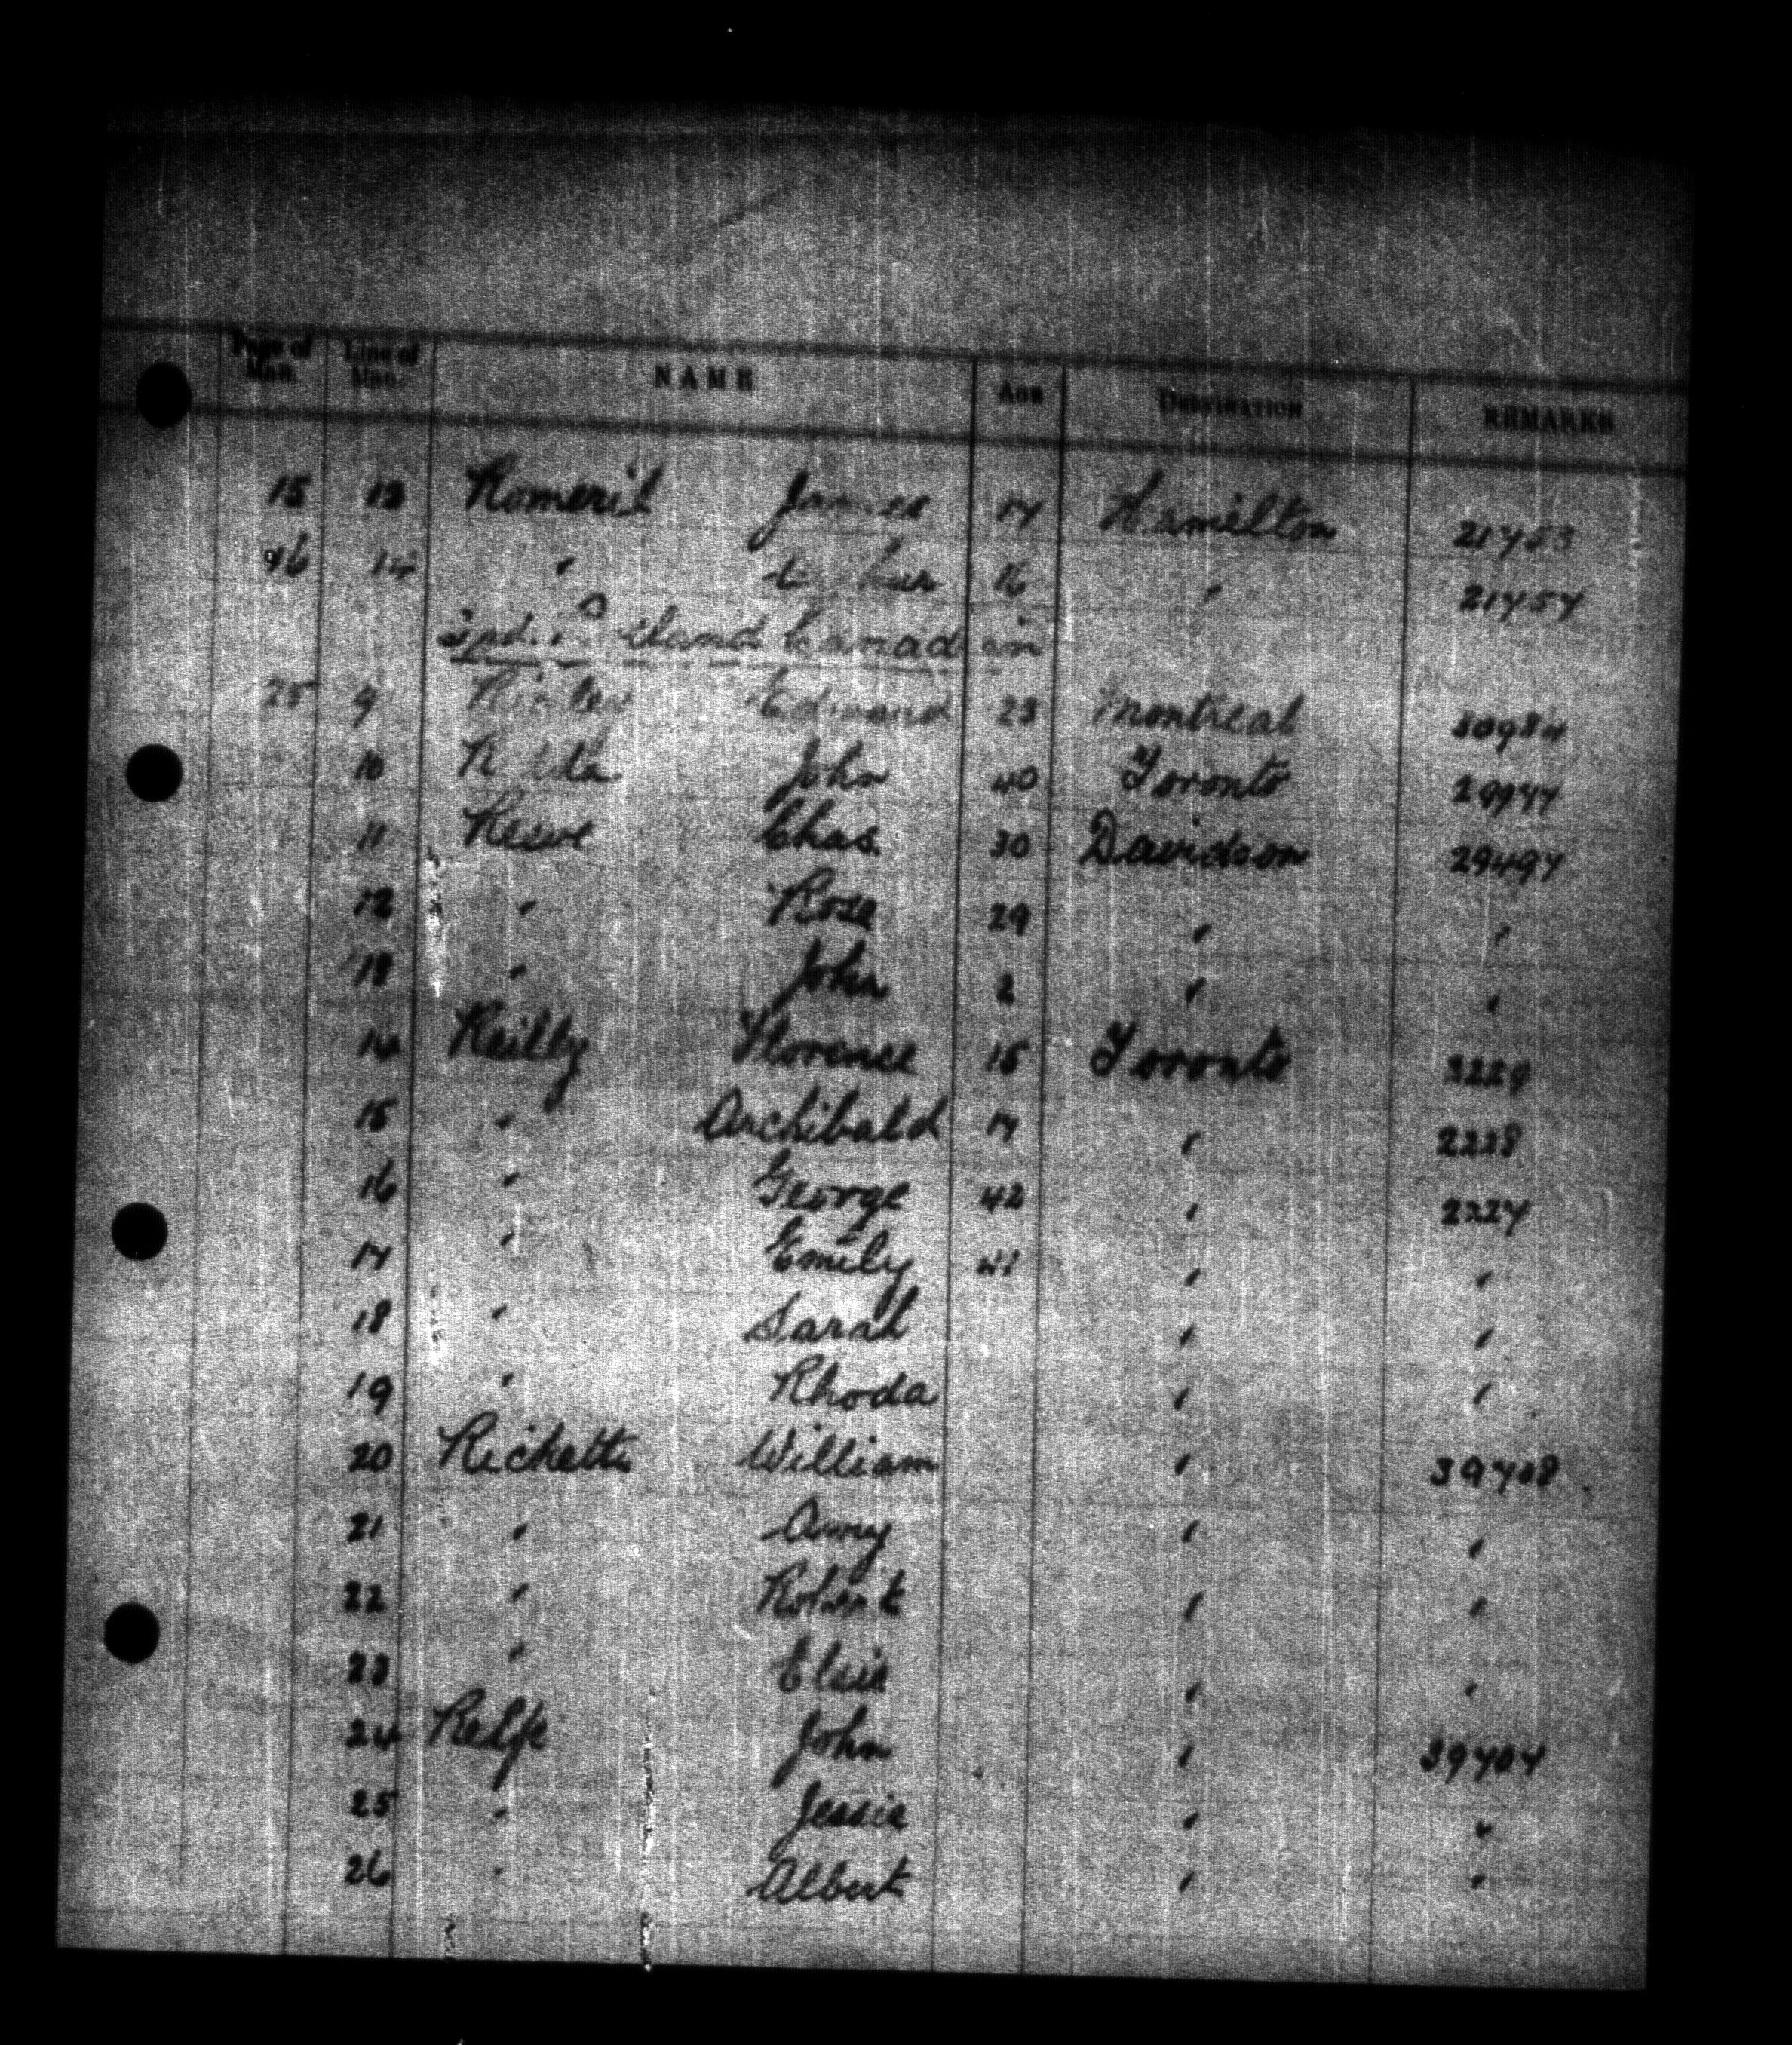 Page of Man. Line of Man. NAME AGE DESTINATION REMARKS
15 13 Romeril James 17 Hamilton 21753
96 14 " 16 " 21754
Canadian
25 9 Edmond 23 Montreal 30984
10 John 40 Toronto 29977
11 Reeve Chas. 30 Davidson 29497
12 " Rose 29 " "
13 " John 2 " "
14 Reilly Florence 15 Toronto 2229
15 " Archibald 17 " 2228
16 " George 42 " 2227
17 " Emily 41 " "
18 " Sarah " "
19 " Rhoda " "
20 Ricketts William " 39708
21 " Amy " "
22 " Robert " "
23 " Elsie " "
24 Relfe John " 39704
25 " Jessie " "
26 " Albert " "